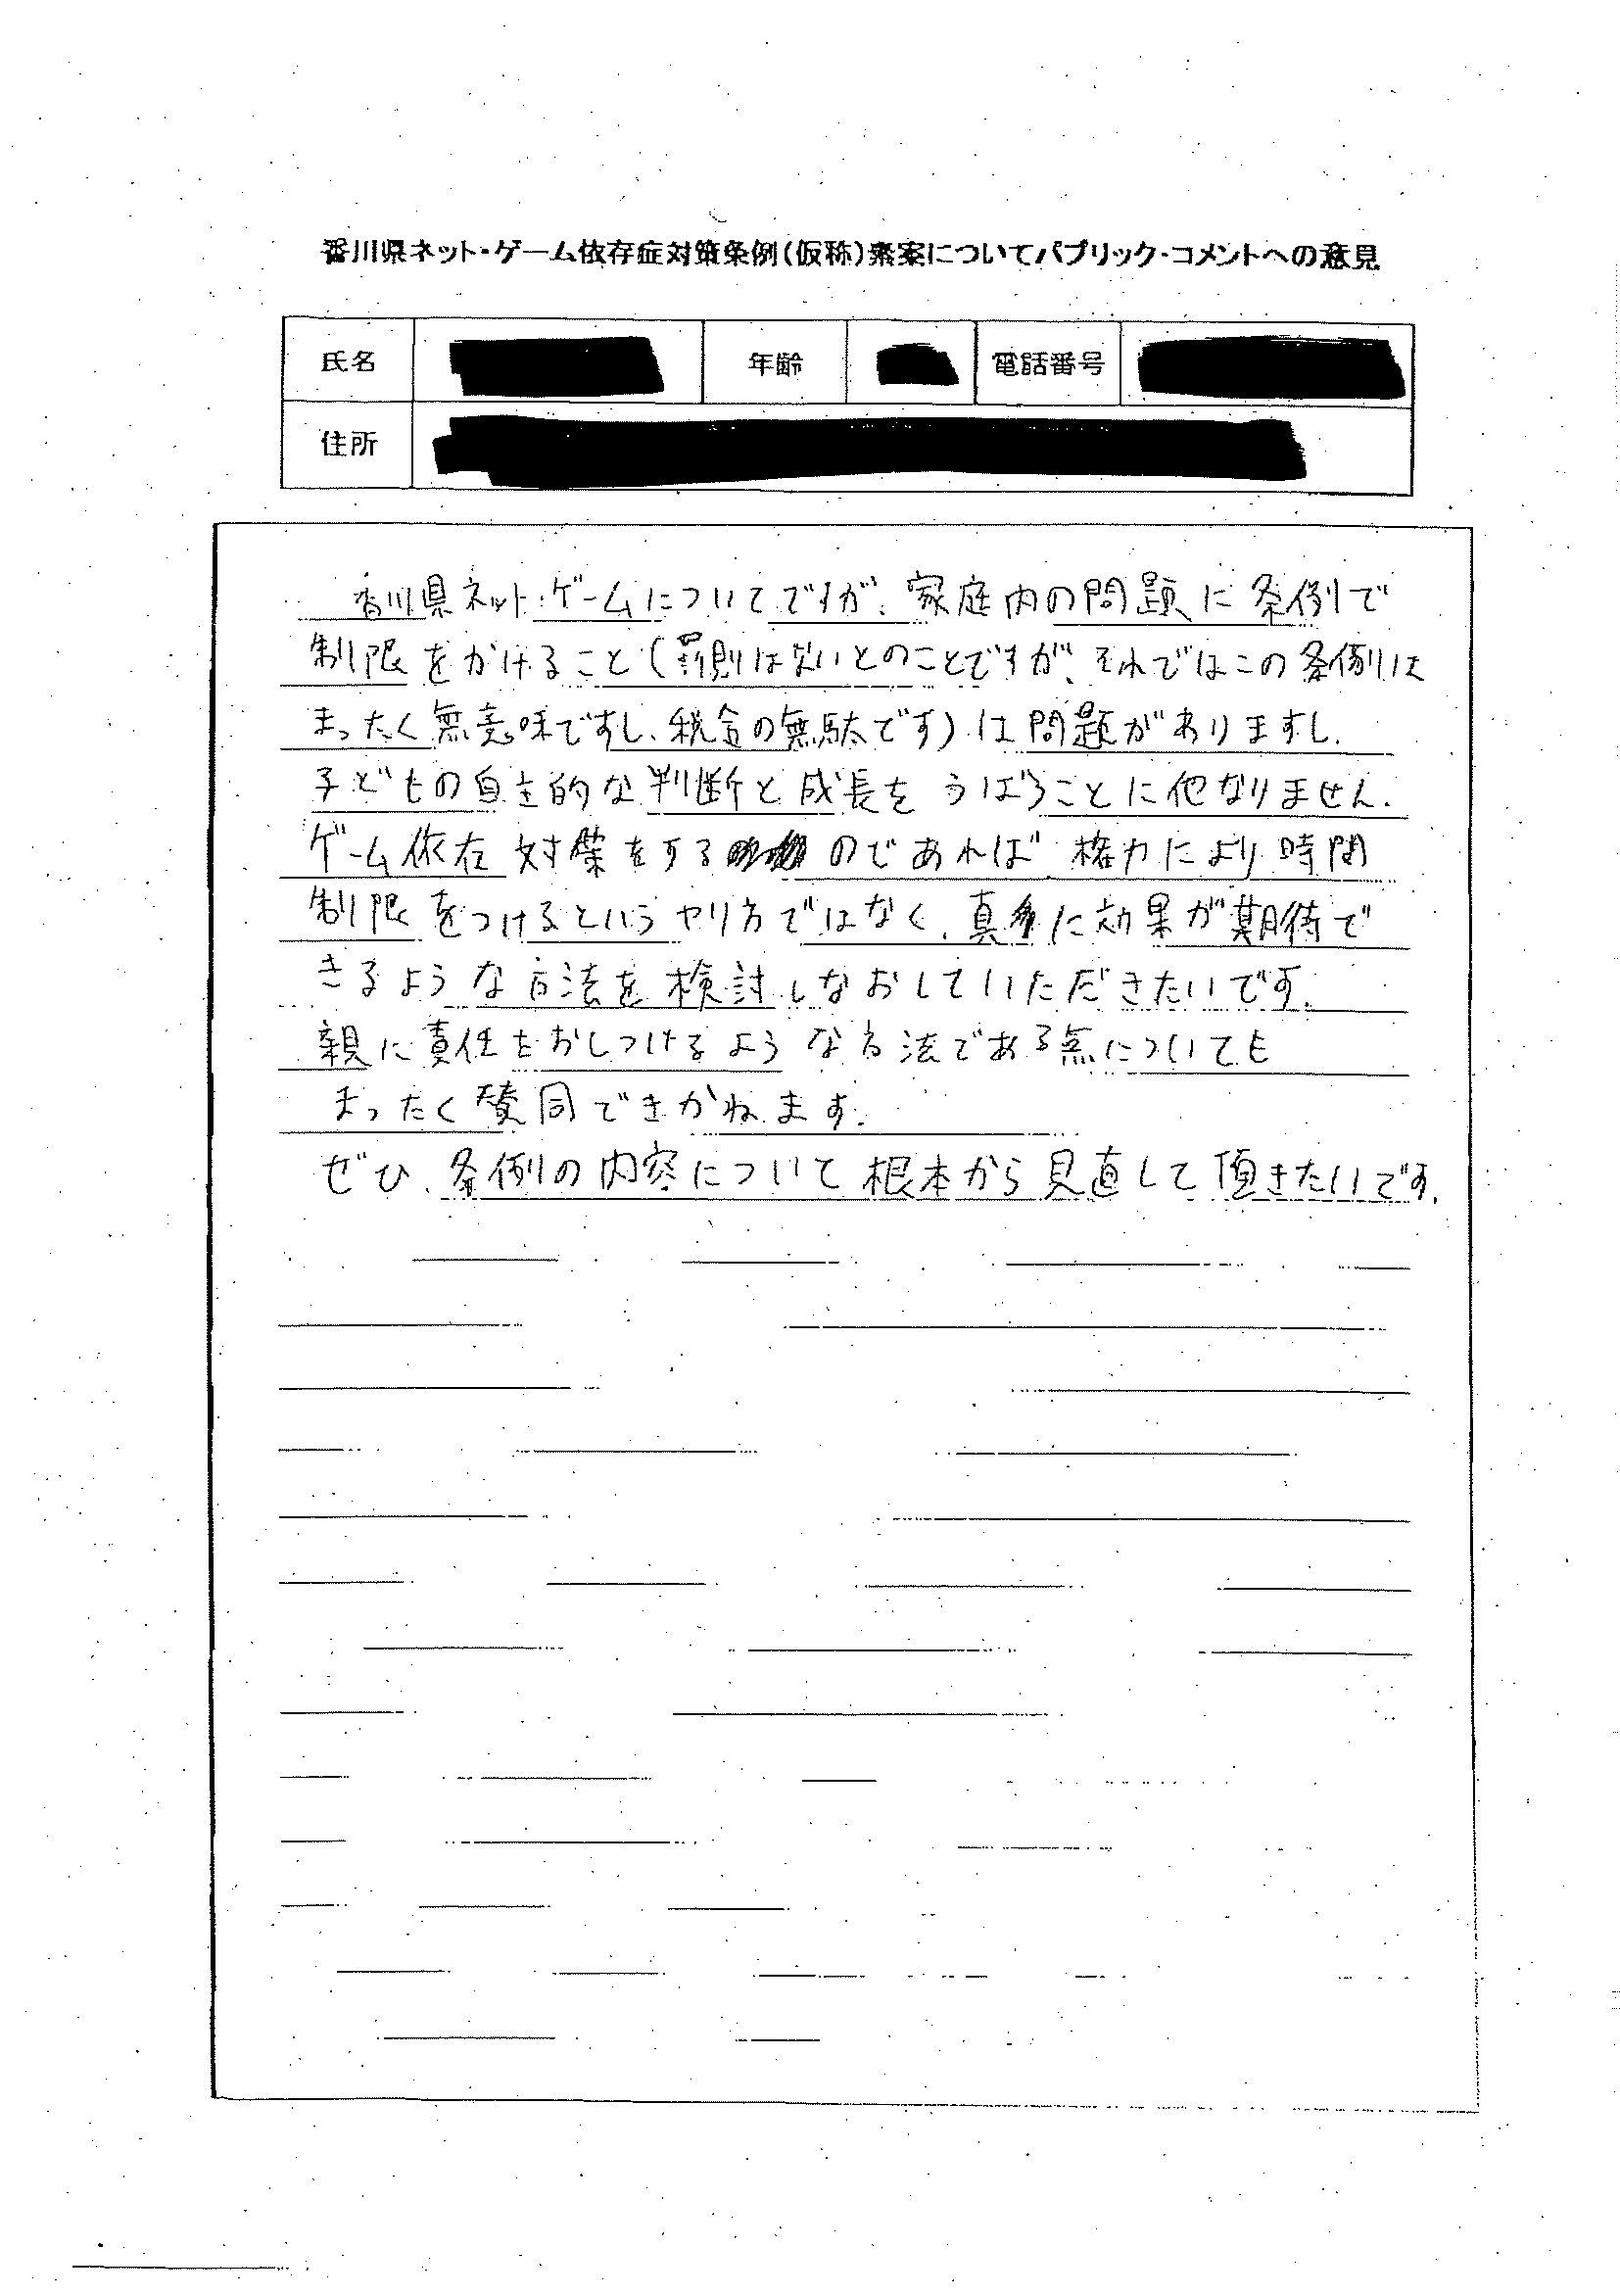 香川県ネット・ゲーム依存症対策条例(仮称)素案についてパブリック・コメントへの意見
氏名 年齢 電話番号
住所
香川県ネット・ゲームについてですが、家庭内の問題に条例で
制限をかけること(罰則はないとのことですが、それではこの条例は
まったく無意味ですし、税金の無駄です)は問題がありますし、
子どもの自主的な判断と成長をうばうことに他なりません。
ゲーム依存対策をするのであれば、権力により時間
制限をつけるというやり方ではなく、真に効果が期待で
きるような方法を検討しなおしていただきたいです。
親に責任をおしつけるような方法である点についても
まったく賛同できかねます。
ぜひ、条例の内容について根本から見直して頂きたいです。